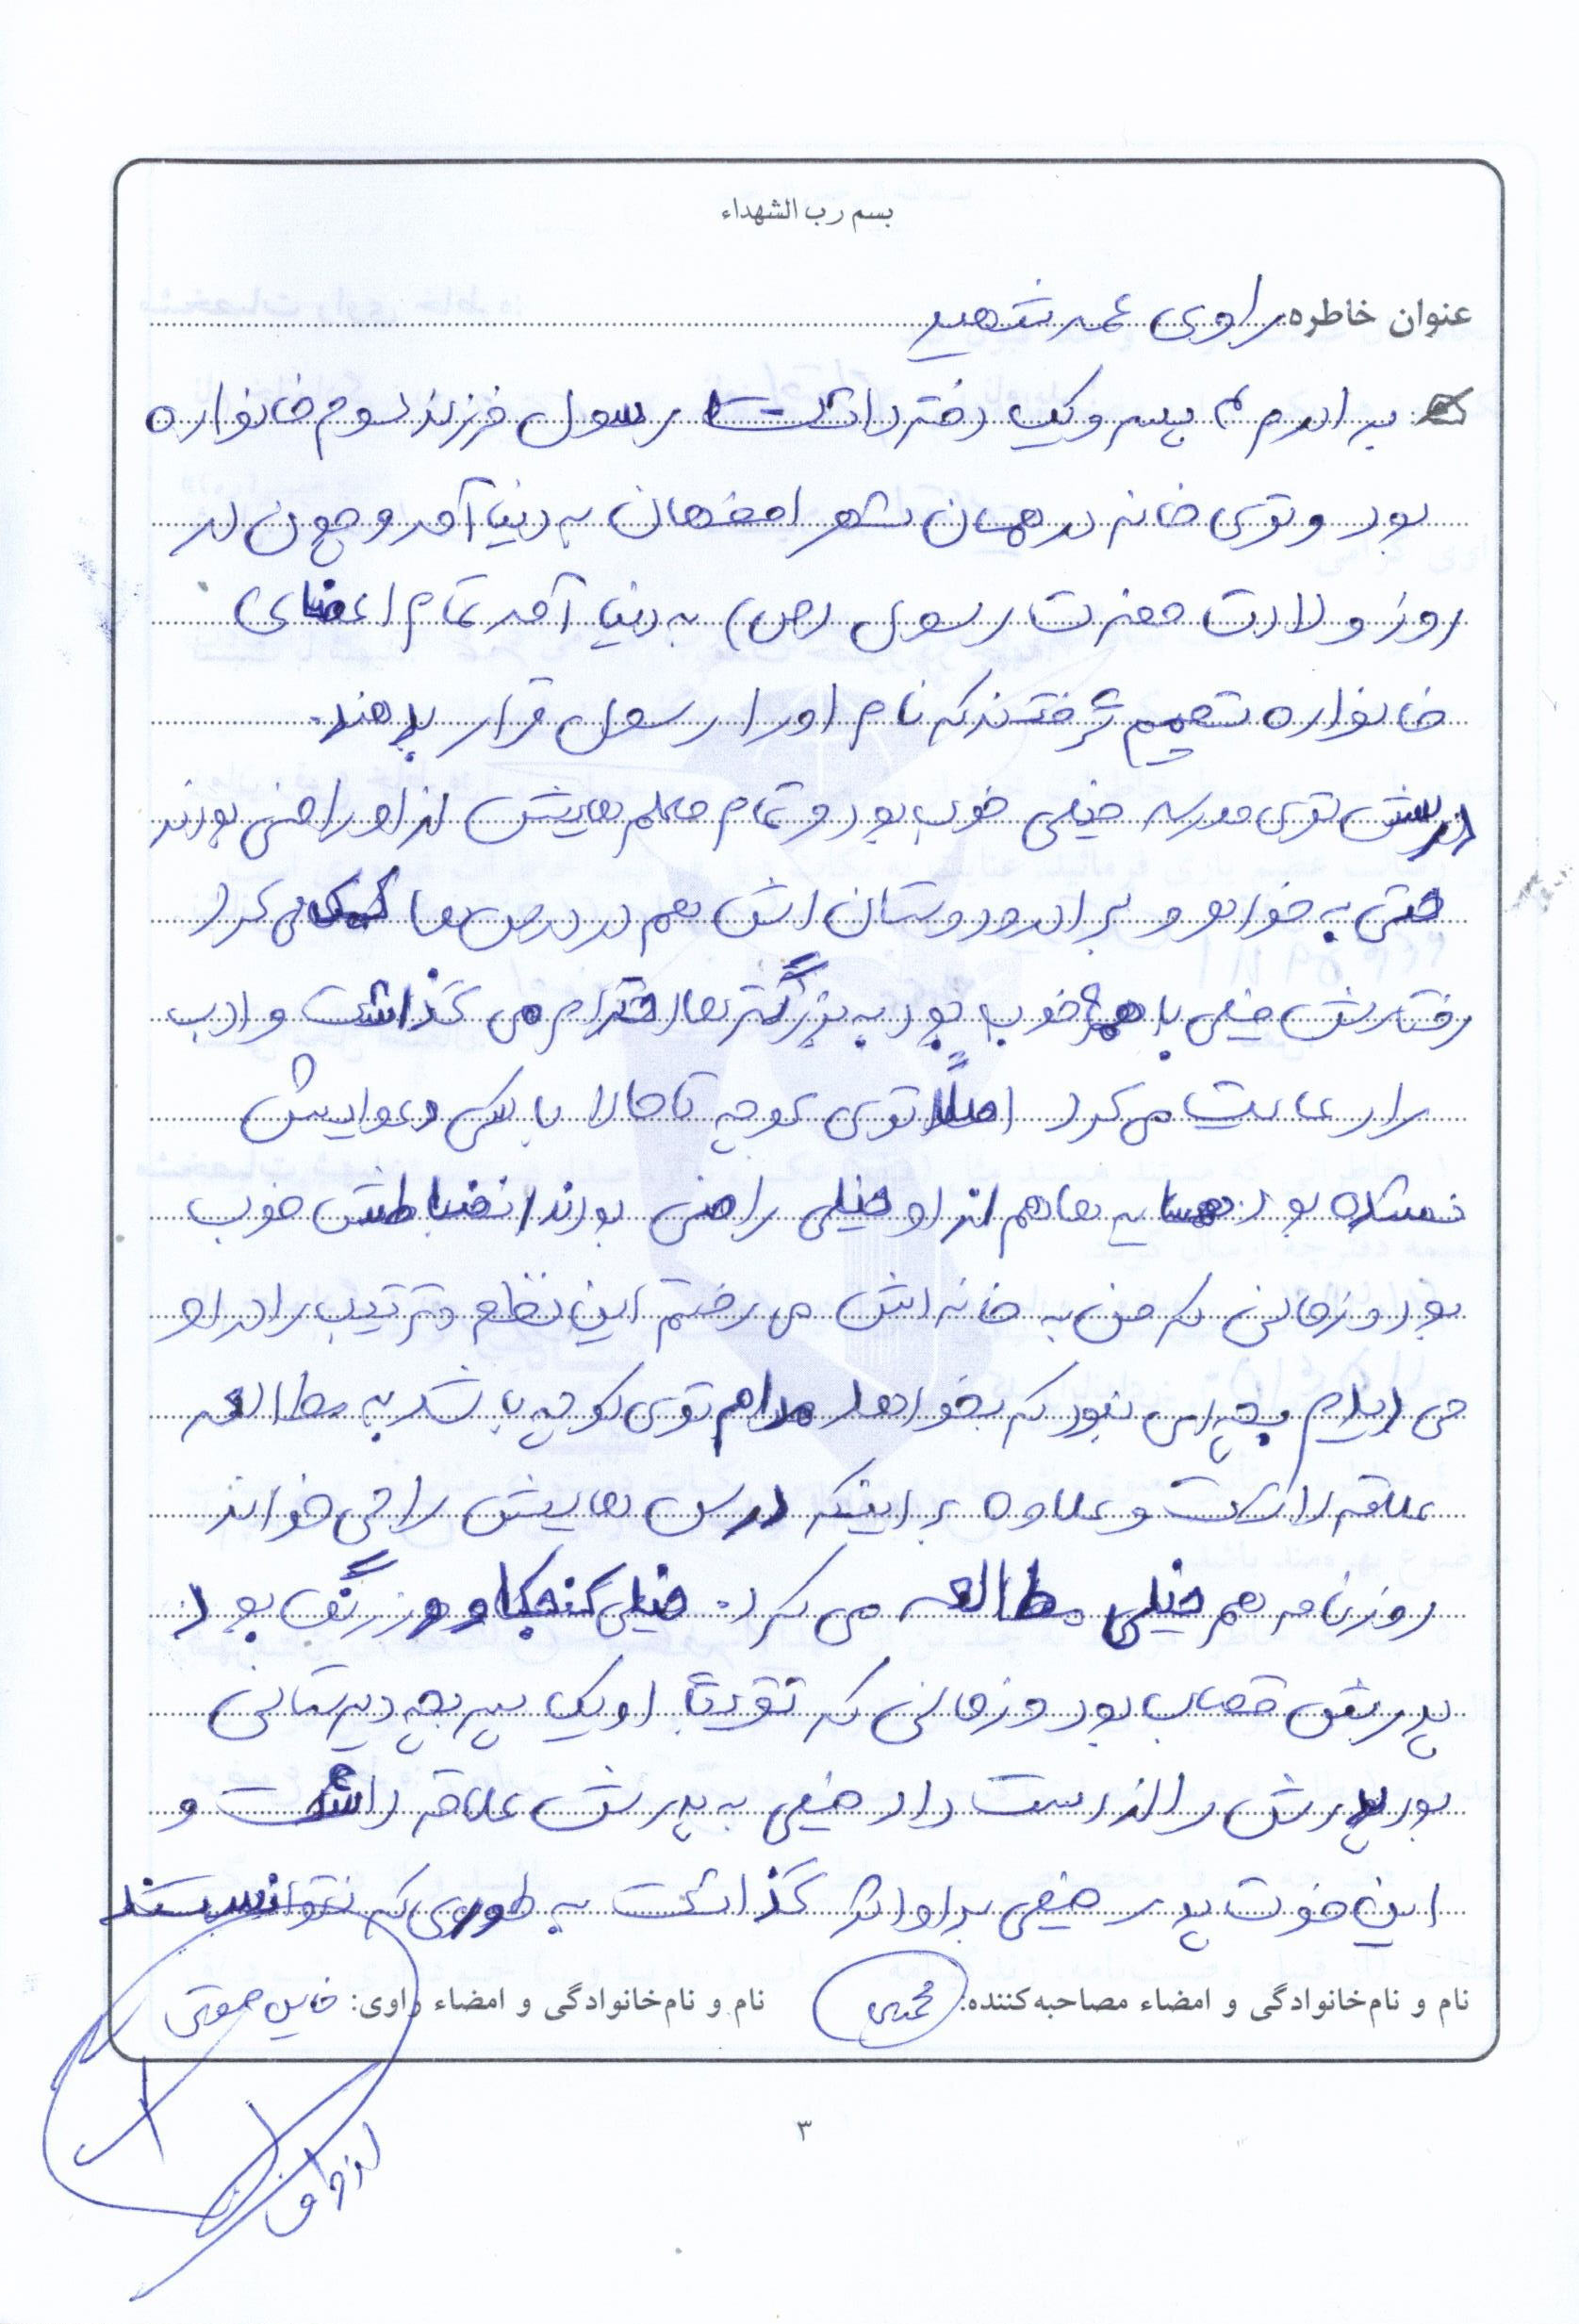 بسم رب الشهداء
عنوان خاطره: راوی عمه شهید
برادرم ۲ پسر و یک دختر داشت رسول فرزند سوم خانواده
بود و توی خانه در همان شهر اصفهان به دنیا آمد و چون در
روز ولادت حضرت رسول (ص) به دنیا آمد تمام اعضای
خانواده تصمیم گرفتند که نام او را رسول قرار بدهند.
درسش توی مدرسه خیلی خوب بود و تمام معلم هایش از او راضی بودند
حتی به خواهر و برادر و دوستان اش هم در درس ها کمک می کرد
رفتارش خیلی با همه خوب بود به بزرگتر ها احترام می گذاشت و ادب
را رعایت می کرد اصلاً توی کوچه تا حالا با کسی دعوایش
نشده بود همسایه ها هم از او خیلی راضی بودند انضباطش خوب
بود و زمانی که من به خانه اش می رفتم این نظم و ترتیب را در او
می دیدم بچه ای نبود که بخواهد مدام توی کوچه باشد به مطالعه
علاقه داشت و علاوه بر اینکه درس هایش را می خواند
روزنامه هم خیلی مطالعه می کرد. خیلی کنجکاو و زرنگ بود
پدرش قصاب بود و زمانی که تقریباً او یک پسر بچه دبیرستانی
بود پدرش را از دست داد خیلی به پدرش علاقه داشت و
این فوت پدر خیلی بر او اثر گذاشت به طوری که نتوانستند
نام و نام‌خانوادگی و امضاء مصاحبه‌کننده: محمدی نام و نام‌خانوادگی و امضاء راوی:
۳